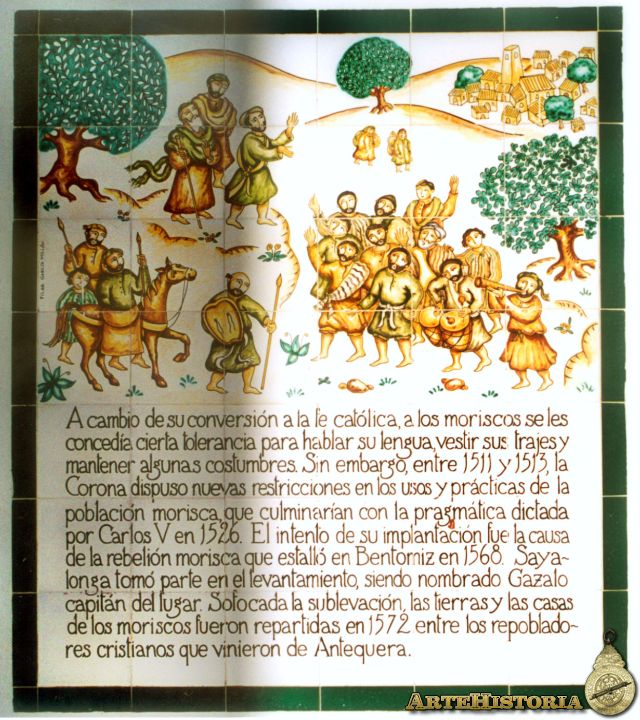 PILAR GARCIA MILLÁN
A cambio de su conversión a la fe católica, a los moriscos se les
concedía cierta tolerancia para hablar su lengua, vestir sus trajes y
mantener algunas costumbres. Sin embargo, entre 1511 y 1513, la
Corona dispuso nuevas restricciones en los usos y prácticas de la
población morisca, que culminarían con la pragmática dictada
por Carlos V en 1526. El intento de su implantación fue la causa
de la rebelión morisca que estalló en Bentomiz en 1568. Saya-
longa tomó parte en el levantamiento, siendo nombrado Gazalo
capitán del lugar. Sofocada la sublevación, las tierras y las casas
de los moriscos fueron repartidas en 1572 entre los repoblado-
res cristianos que vinieron de Antequera.
ARTEHISTORIA